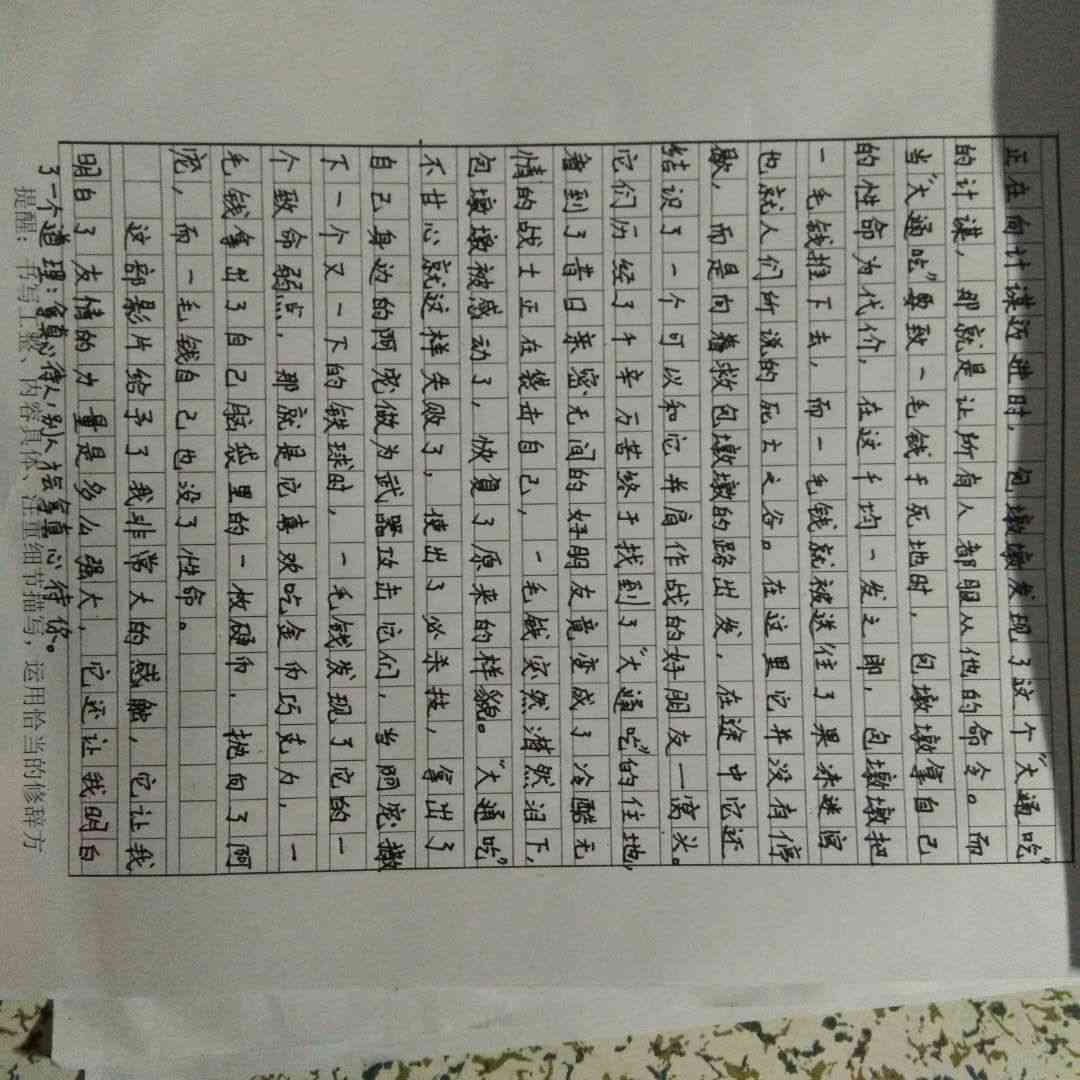 正在向计谋迈进时，包墩墩发现了这个“大通吃”
的计谋，那就是让所有人都服从他的命令。而
当“大通吃”要致一毛钱于死地时，包墩墩拿自己
的性命为代价，在这千均一发之即，包墩墩把
一毛钱推下去，而一毛钱就被送往了果冻迷宫
也就人们所说的死亡之谷。在这里它并没有停
歇，而是向着救包墩墩的路出发，在途中它还
结识了一个可以和它并肩作战的好朋友—窝头。
它们历经了千辛万苦终于找到了“大通吃”的住地，
看到了昔日亲密无间的好朋友竟变成了冷酷无
情的战士正在袭击自己，一毛钱突然潸然泪下，
包墩墩被感动了，恢复了原来的样貌。“大通吃”
不甘心就这样失败了，使出了必杀技，拿出了
自己身边的阿庞做为武器攻击它们，当阿庞撒
下一个又一下的铁球时，一毛钱发现了它的一
个致命弱点，那就是它喜欢吃金币巧克力，一
毛钱拿出了自己脑袋里的一枚硬币，抛向了阿
庞，而一毛钱自己也没了性命。
这部影片给予了我非常大的感触，它让我
明白了友情的力量是多么强大，它还让我明白
了一个道理：拿真心待人，别人才会拿真心待你。
提醒：书写工整、内容具体、注重细节描写，运用恰当的修辞方